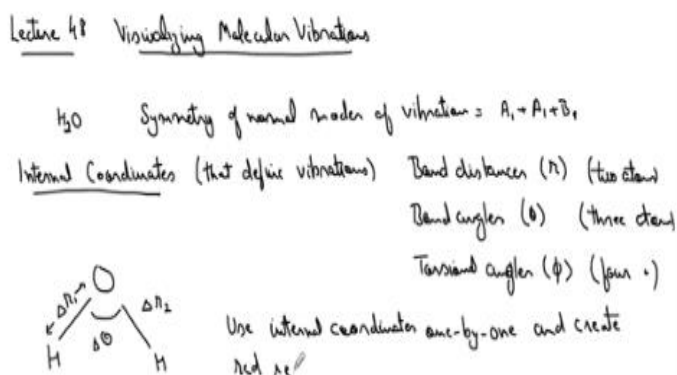 Lecture 48 Visualizing Molecular Vibrations
H₂O Symmetry of normal modes of vibration = A₁ + A₁ + B₁
Internal Coordinates (that define vibrations) Bond distances (r) (two atoms)
Bond angles (θ) (three atoms
Torsional angles (φ) (four ")
O
Δr₁ Δr₂
Δθ
H H
Use internal coordinates one-by-one and create
red re